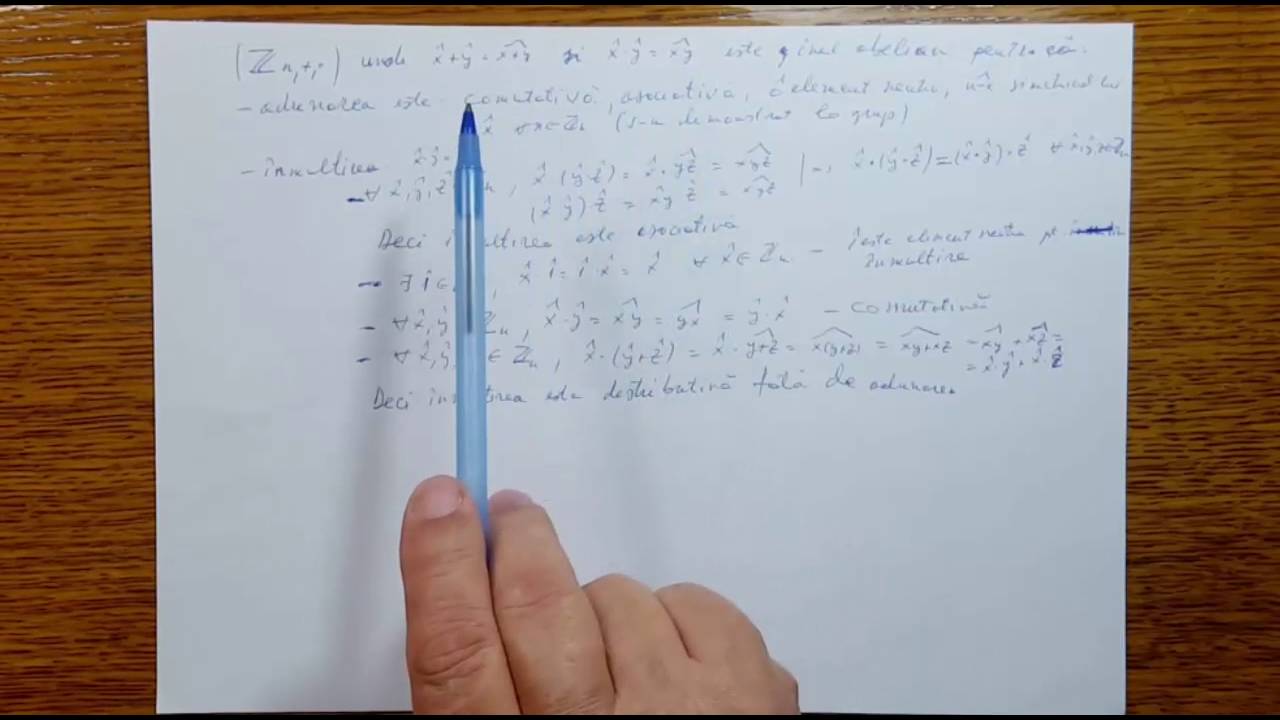 (ℤn,+,·) unde x̂+ŷ=x+y^ și x̂·ŷ=xy^ este inel abelian pentru că
- adunarea este comutativă, asociativă, 0̂ element neutru, n-x^ simetricul lui
x̂ ∀x∈ℤn (s-a demonstrat la grup)
- înmulțirea x̂·ŷ=
- ∀ x̂,ŷ,ẑ, x̂(ŷ·ẑ)=x̂·yz^=xyz^ |=, x̂·(ŷ·ẑ)=(x̂·ŷ)·ẑ ∀x̂,ŷ,ẑ∈ℤn
(x̂ŷ)·ẑ=xy^ ẑ=xyz^
Deci este asociativă
- ∃ 1̂∈, x̂·1̂=1̂·x̂=x̂ ∀x̂∈ℤn - 1̂ este element neutru pt
înmulțire
- ∀x̂,ŷ ℤn, x̂·ŷ=xy^=yx^=ŷ·x̂ - comutativă
- ∀x̂,ŷ, ∈ℤn, x̂·(ŷ+ẑ)=x̂·y+z^=x(y+z)^=xy+xz^=xy^+xz^=
=x̂·ŷ+x̂·ẑ
Deci este distributivă față de adunare